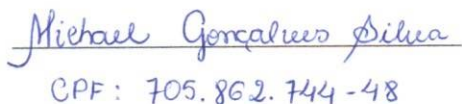 Michael Gonçalves Silva
CPF: 705.862.744-48